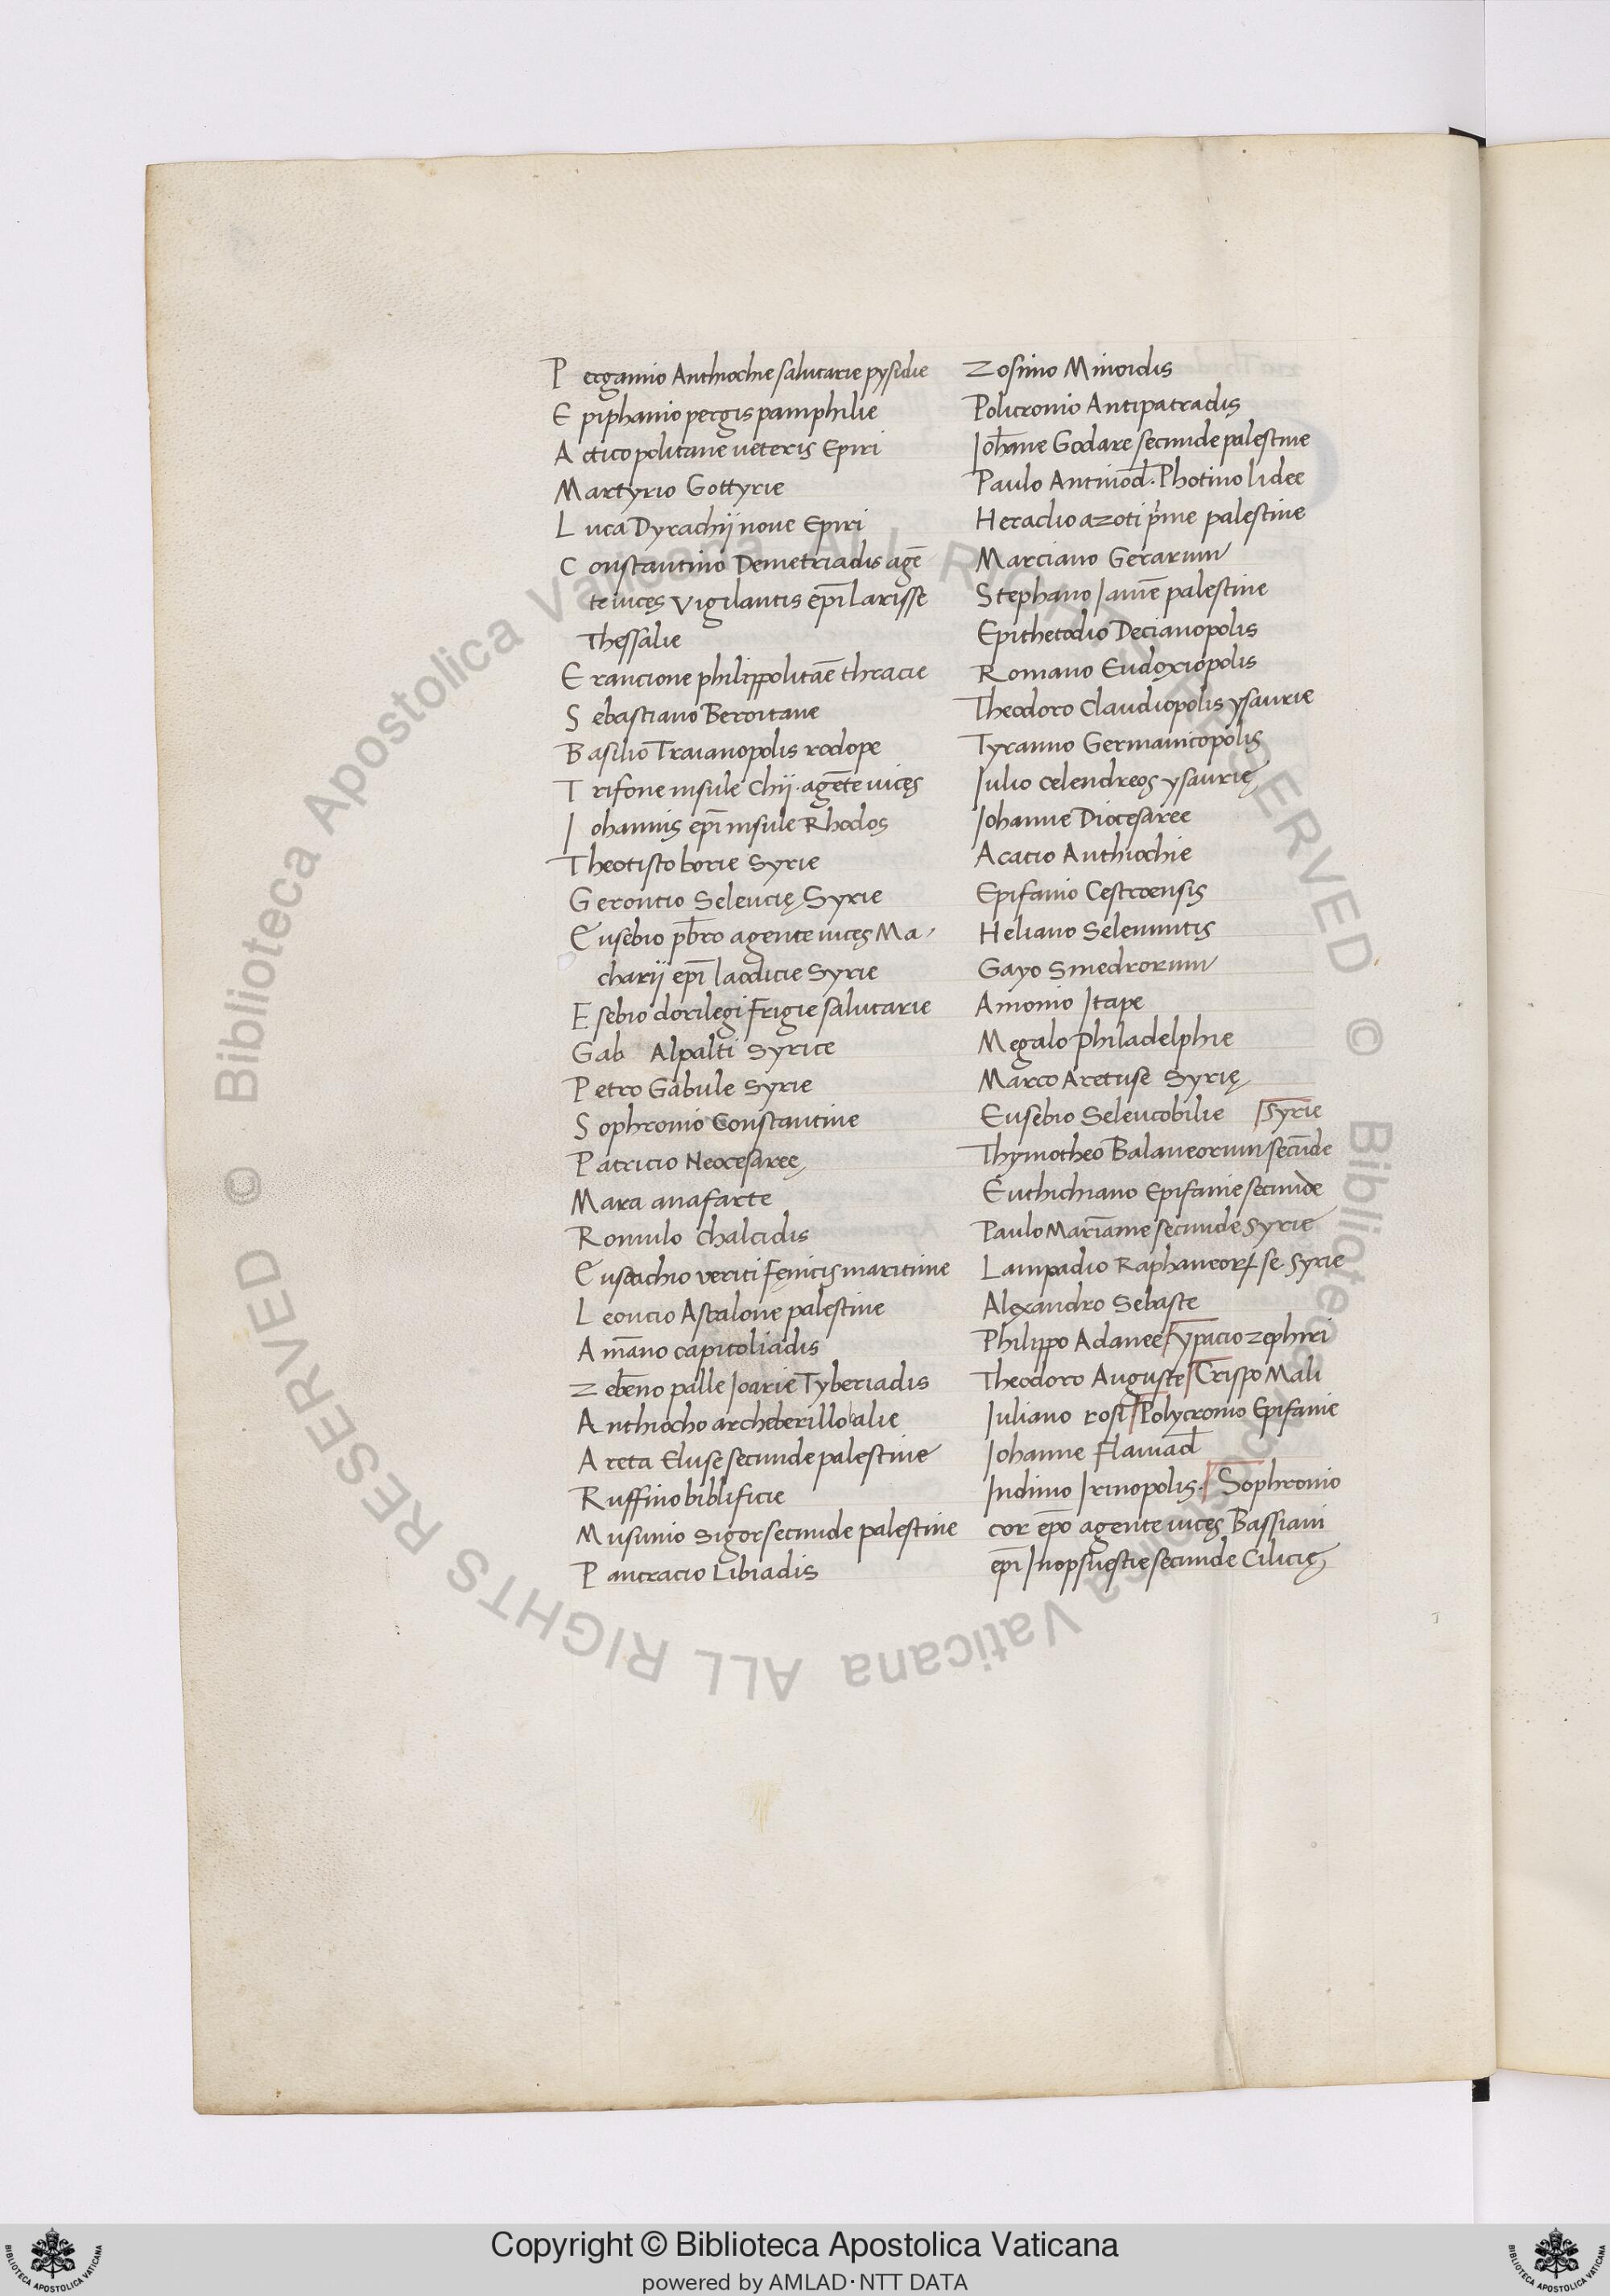 Pergamio Anthiochie salutarie pysidie
Epiphanio pergis pamphilie
Actico politane ueteris Epiri
Martyrio Gottyrie
Luca Dyrachij noue Epiri
Constantino Demetriadis agē
te uicęs Vigilantis ep̄i Larisse
Thessalie
Erancione philippolitāe thracie
Sebastiano Beroitane
Basilio Traianopolis rodope
Trifone insule Chij · agēte uicęs
Johannis ep̄i insule Rhodos
Theotisto borie Syrie
Gerontio Seleucię Syrie
Eusebio p̄bro agente uicęs Ma-
charij ep̄i laodicie Syrie
Esebio dorilegi Frigie salutarie
Gab Alpalti Syrice
Petro Gabule Syrie
Sophronio Constantine
Patricio Neocesaree
Mara anafarte
Romulo Chalcidis
Eustachio veriti Fęnicis maritime
Leoncio Ascalone palestine
Am̄ano capitoliadis
Zebēno palle Joarie Tyberiadis
Anthiocho archeberillo alie
Areta Eluse secunde palestine
Ruffino biblificie
Musunio Sigor secunde palestine
Pancracio Libiadis
Zosimo Minoidis
Policronio Antipatradis
Joh̄ane Godare secunde palestine
Paulo Antiniod̄ · Photino lidee
Heraclio azoti p̄me palestine
Marciano Gerarum
Stephano Jamēe palestine
Epithetodio Decianopolis
Romano Eudoxiopolis
Theodoro Claudiopolis ysaurie
Tyranno Germanicopolis
Julio celendreos ysaurię
Johanne Diocesaree
Acacio Anthiochie
Epifanio Cestroensis
Heliano Selenuntis
Gayo Smedrorum
Amonio Jtape
Megalo Philadelphie
Marco Aretuse Syrię
Eusebio Seleucobilie Syrie
Thymotheo Balaneorum secūde
Euthichiano Epifanie secunde
Paulo Mariāme secunde Syrie
Lampadio Raphaneorꝝ se. Syrie
Alexandro Sebaste
Philippo Adanee ypacio zephiri
Theodoro Auguste Crispo Mali
Juliano rosi Polycronio Epifanie
Johanne Flauiad̄
Indimo Irinopolis. Sophronio
cor ep̄o agente uicęs Bassiani
ep̄i Jnopsuestie secunde Cilicię
Copyright © Biblioteca Apostolica Vaticana
powered by AMLAD·NTT DATA